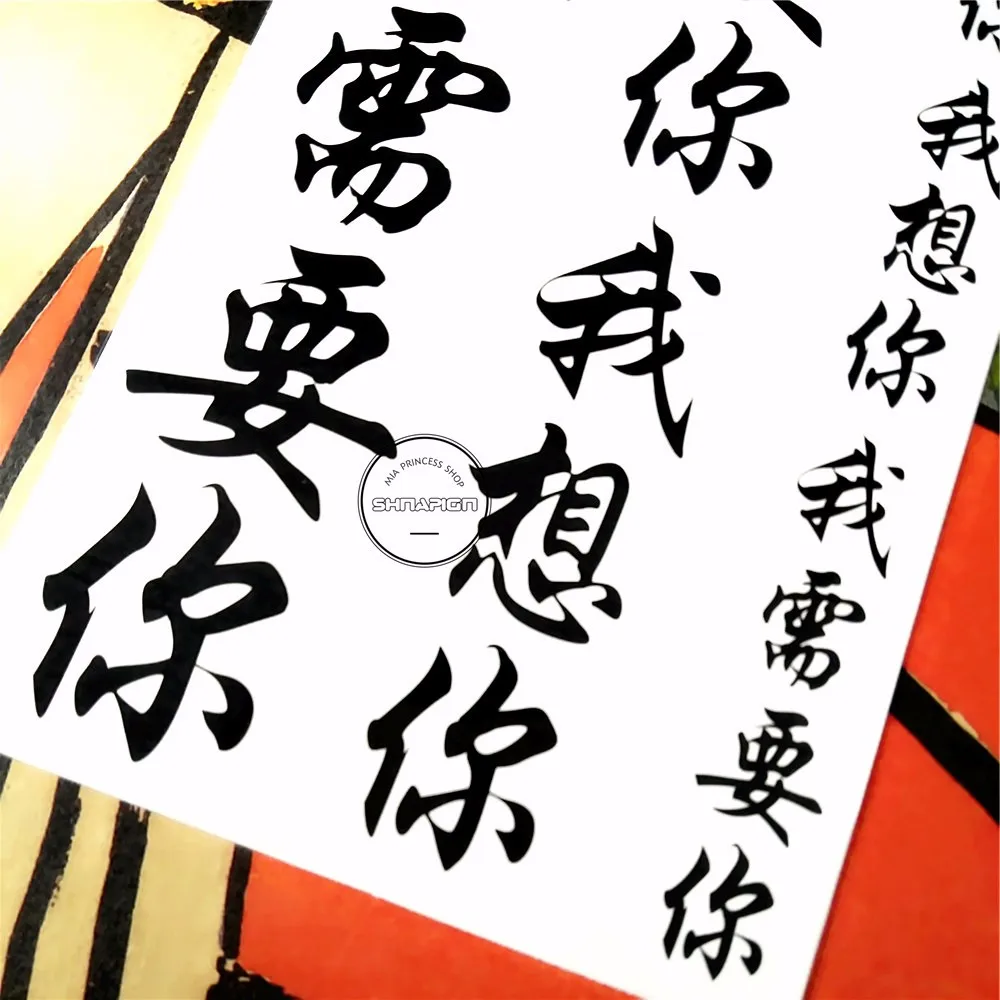 需要你
你我想你
你我想你我需要你
MIA PRINCESS SHOP
SHNAPIGN